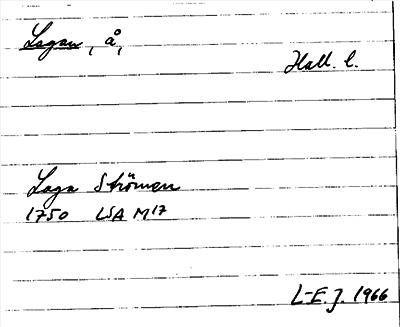 Lagan, å,
Hall. l.
Laga Strömen
1750 LSA M17
L-E. J. 1966